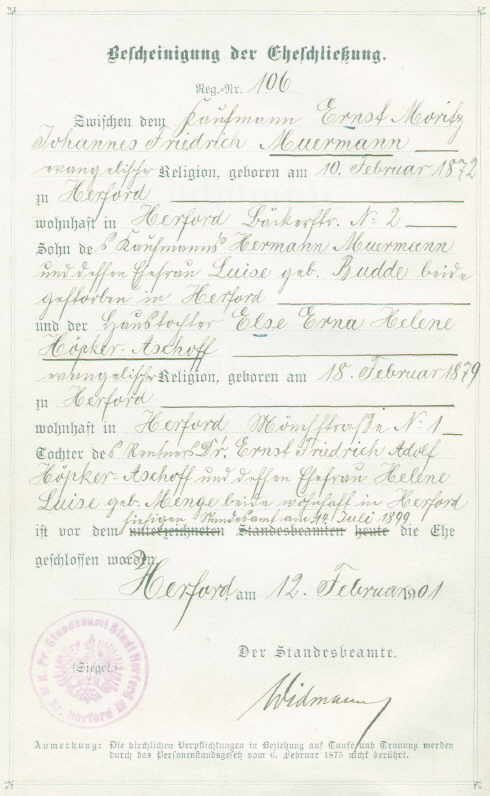 Bescheinigung der Eheschließung.
Reg.-Nr. 106
Zwischen dem Kaufmann Ernst Moritz
Johannes Friedrich Muermann
evangelische Religion, geboren am 10. Februar 1872
zu Herford
wohnhaft in Herford Bäckerstr. No 2
Sohn des Kaufmanns Hermann Muermann
und dessen Ehefrau Luise geb. Budde beide
gestorben in Herford
und der Haustochter Else Erna Helene
Höpker-Aschoff
evangelische Religion, geboren am 18. Februar 1879
zu Herford
wohnhaft in Herford Mönchstraße No 1
Tochter des Rentners Dr. Ernst Friedrich Adolf
Höpker-Aschoff und dessen Ehefrau Helene
Luise geb. Menge beide wohnhaft in Herford
hiesigen Standesamt am 14. Juli 1899
ist vor dem unterzeichneten Standesbeamten heute die Ehe
geschlossen worden.
Herford, am 12. Februar 1901
Der Standesbeamte.
(Siegel.)
Widmann
Anmerkung: Die kirchlichen Verpflichtungen in Beziehung auf Taufe und Trauung werden
durch das Personenstandsgesetz vom 6. Februar 1875 nicht berührt.